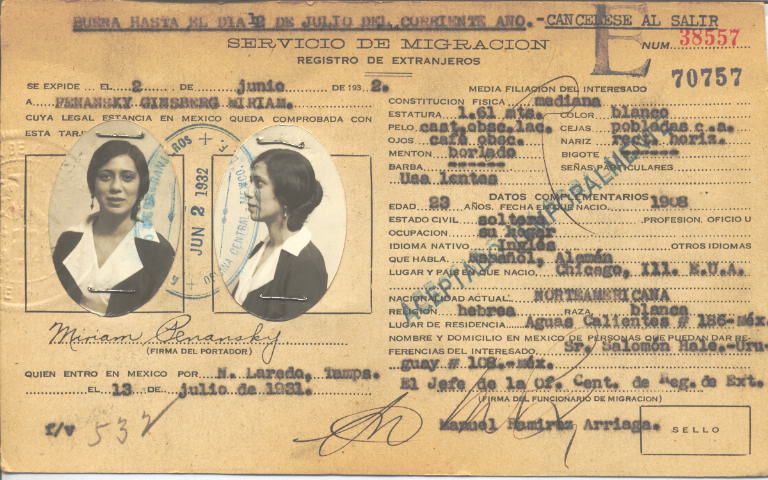 BUENA HASTA EL DIA 12 DE JULIO DEL CORRIENTE AÑO.-CANCELESE AL SALIR
SERVICIO DE MIGRACION
REGISTRO DE EXTRANJEROS
E
NUM. 38557
70757
SE EXPIDE EL 2 DE junio DE 1932.
A PENANSKY GINSBERG MIRIAM.
CUYA LEGAL ESTANCIA EN MEXICO QUEDA COMPROBADA CON
ESTA TARJ
JUN 2 1932
OFICINA CENTRAL MEXICO
Miriam Penansky
(FIRMA DEL PORTADOR)
QUIEN ENTRO EN MEXICO POR N. Laredo, Tamps.
EL 13 DE julio DE 1931.
f/v 532
MEDIA FILIACION DEL INTERESADO
CONSTITUCION FISICA mediana
ESTATURA 1.61 mts. COLOR blanco
PELO cast.obsc.lac. CEJAS pobladas c.a.
OJOS café obsc. NARIZ rect. horiz.
MENTON borlado BIGOTE ------
BARBA ------ SEÑAS PARTICULARES
Usa lentes
DATOS COMPLEMENTARIOS
EDAD 23 AÑOS. FECHA EN QUE NACIO 1908
ESTADO CIVIL soltera PROFESION, OFICIO U
OCUPACION su hogar
IDIOMA NATIVO Inglés OTROS IDIOMAS
QUE HABLA Español, Alemán
LUGAR Y PAIS EN QUE NACIO Chicago, Ill. E.U.A.
NACIONALIDAD ACTUAL NORTEAMERICANA
RELIGION hebrea RAZA blanca
LUGAR DE RESIDENCIA Aguas Calientes # 186-Méx.
NOMBRE Y DOMICILIO EN MEXICO DE PERSONAS QUE PUEDAN DAR RE-
FERENCIAS DEL INTERESADO Sr. Salomón Hale.-Uru-
guay # 108.-Méx.
El Jefe de la Of. Cent. de Reg. de Ext.
(FIRMA DEL FUNCIONARIO DE MIGRACION)
Manuel Ramirez Arriaga.
SELLO